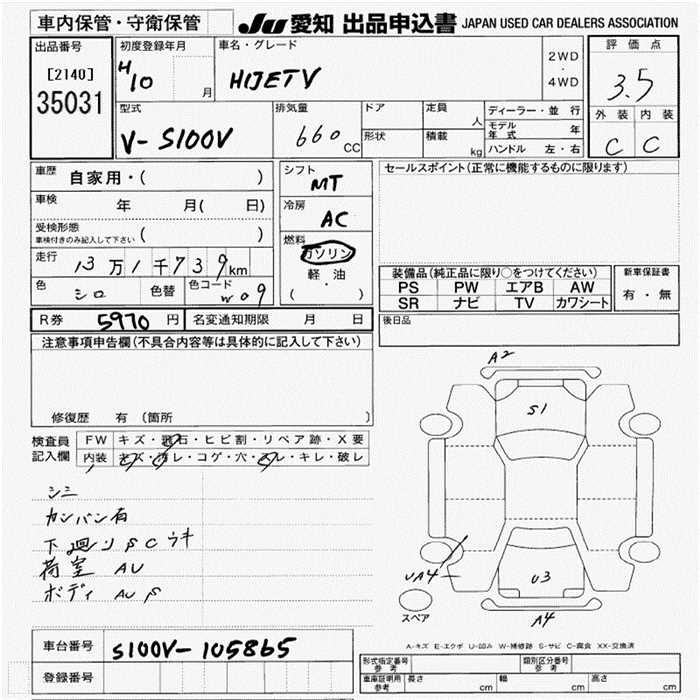 車内保管・守衛保管
Ju 愛知 出品申込書 JAPAN USED CAR DEALERS ASSOCIATION
出品番号
[2140]
35031
初度登録年月
H10 月
車名・グレード
HIJETV
2WD
・
4WD
評価点
3.5
外装 内装
C C
型式
V-S100V
排気量
660 CC
ドア
形状
定員 人
積載 kg
ディーラー・並行
モデル年式 年
ハンドル 左・右
車歴 自家用・( )
車検 年 月( 日)
受検形態
車検付きのみ記入して下さい ( )
走行 13万1千739km
色 シロ 色替 色コード W09
シフト
MT
冷房
AC
燃料
ガソリン
軽油
( ・ )
セールスポイント(正常に機能するものに限ります)
装備品(純正品に限り○をつけてください)
PS PW エアB AW
SR ナビ TV カワシート
新車保証書
有・無
R券 5970 円 名変通知期限 月 日
後日品
注意事項申告欄(不具合内容等は具体的に記入して下さい)
修復歴 有(箇所 )
検査員記入欄
FW キズ・飛石・ヒビ割・リペア跡・X要
内装 キズ・汚レ・コゲ・穴・スレ・キレ・破レ
シミ
カンバン有
下廻りSCウキ
荷室 AU
ボディ AUS
A2
S1
UA4
U3
A4
スペア
A-キズ E-エクボ U-凹み W-補修跡 S-サビ C-腐食 XX-交換済
車台番号 S100V-105865
登録番号
形式指定番号 参考
類別区分番号 参考
車庫証明用 参考 長さ cm 幅 cm 高さ cm